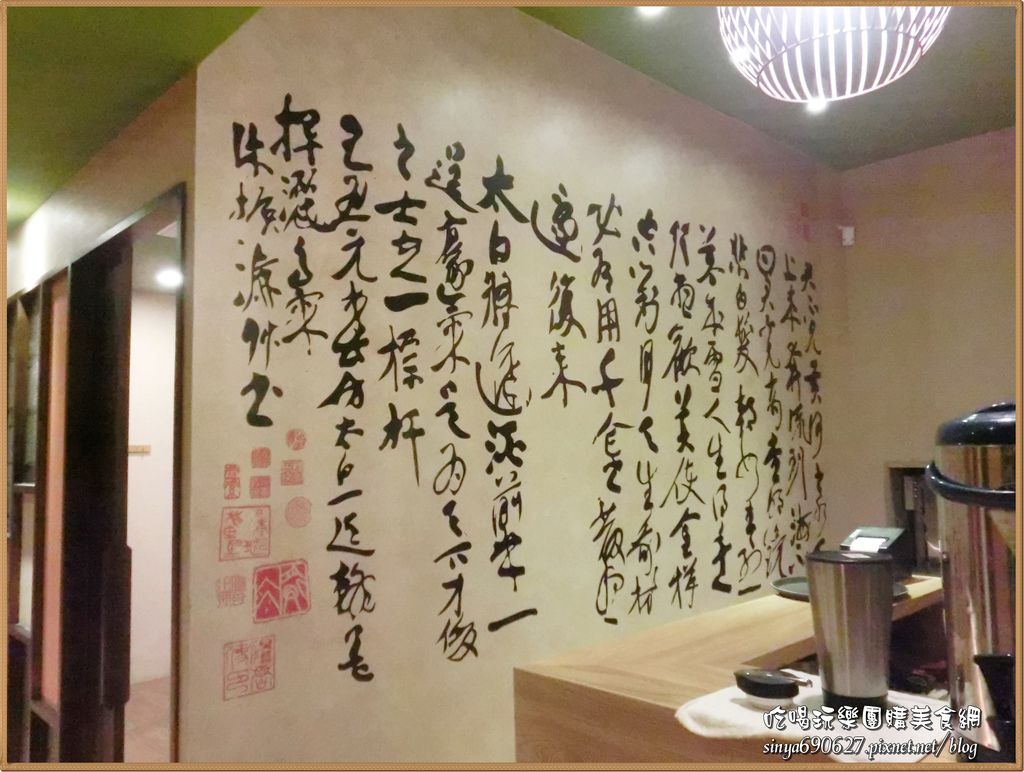 君不見黃河之水天
上來奔流到海不
回君不見高堂明鏡
悲白髮朝如青絲
暮成雪人生得意
須盡歡莫使金樽
空對月天生我材
必有用千金散盡
還復來
太白將進酒前半
豪氣 為天下才俊
之士之一標杆
太白一
揮灑
朱振南 書
吃喝玩樂團購美食網
sinya690627.pixnet.net/blog